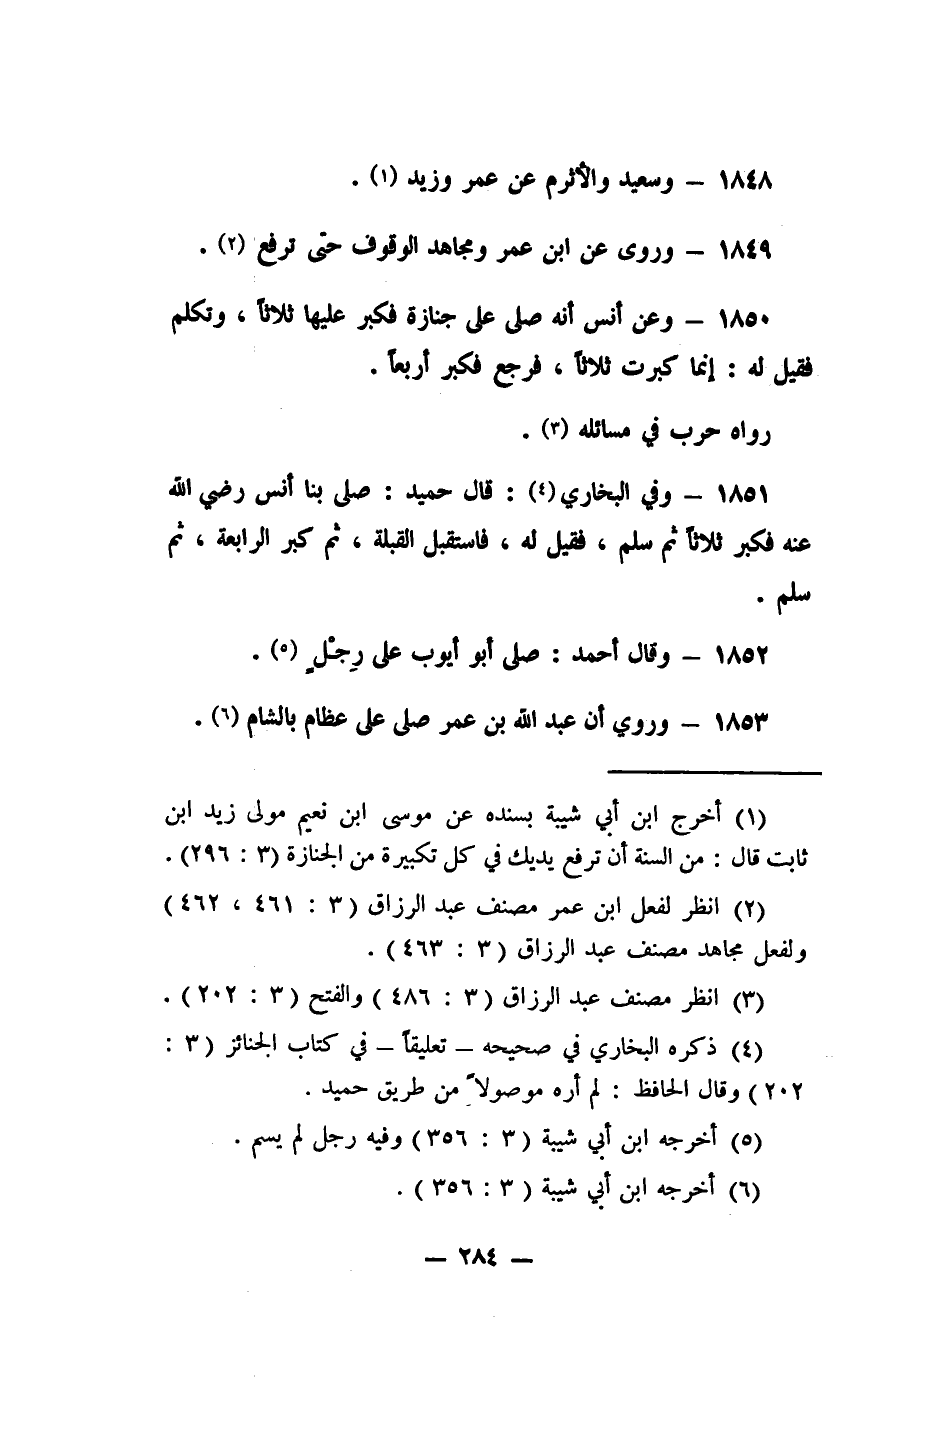 ١٨٤٨ – وسعيد والأثرم عن عمر وزيد (١) .
١٨٤٩ – وروى عن ابن عمر ومجاهد الوقوف حتى ترفع (٢) .
١٨٥٠ – وعن أنس أنه صلى على جنازة فكبر عليها ثلاثاً ، وتكلم
فقيل له : إنما كبرت ثلاثاً ، فرجع فكبر أربعاً .
رواه حرب في مسائله (٣) .
١٨٥١ – وفي البخاري(٤) : قال حميد : صلى بنا أنس رضي الله
عنه فكبر ثلاثاً ثم سلم ، فقيل له ، فاستقبل القبلة ، ثم كبر الرابعة ، ثم
سلم .
١٨٥٢ – وقال أحمد : صلى أبو أيوب على رِجْلٍ (٥) .
١٨٥٣ – وروي أن عبد الله بن عمر صلى على عظام بالشام (٦) .
(١) أخرج ابن أبي شيبة بسنده عن موسى ابن نعيم مولى زيد ابن
ثابت قال : من السنة أن ترفع يديك في كل تكبيرة من الجنازة (٣ : ٢٩٦) .
(٢) انظر لفعل ابن عمر مصنف عبد الرزاق (٣ : ٤٦١ ، ٤٦٢)
ولفعل مجاهد مصنف عبد الرزاق (٣ : ٤٦٣) .
(٣) انظر مصنف عبد الرزاق (٣ : ٤٨٦) والفتح (٣ : ٢٠٢) .
(٤) ذكره البخاري في صحيحه – تعليقاً – في كتاب الجنائز (٣ :
٢٠٢) وقال الحافظ : لم أره موصولاً من طريق حميد .
(٥) أخرجه ابن أبي شيبة (٣ : ٣٥٦) وفيه رجل لم يسم .
(٦) أخرجه ابن أبي شيبة (٣ : ٣٥٦) .
– ٢٨٤ –